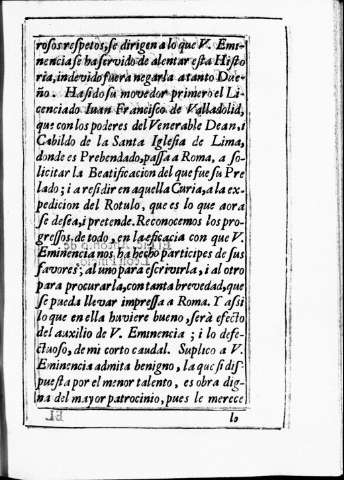 rosos respetos, se dirigen a lo que V. Emi-
nencia se ha servido de alentar esta Histo
ria, indevido fuera negarla a tanto Due-
ño. Ha sido su movedor primero el Li-
cenciado Iuan Francisco de Valladolid,
que con los poderes del Venerable Dean, i
Cabildo de la Santa Iglesia de Lima,
donde es Prebendado, passa a Roma, a so-
licitar la Beatificacion del que fue su Pre
lado; i a residir en aquella Curia, a la ex-
pedicion del Rotulo, que es lo que aora
se desea, i pretende. Reconocemos los pro-
gressos de todo, en la eficacia con que V.
Eminencia nos ha hecho participes de sus
favores; al uno para escrivirla, i al otro
para procurarla, con tanta brevedad, que
se pueda llevar impressa a Roma. Y assi
lo que en ella huviere bueno, serà efecto
del auxilio de V. Eminencia; i lo defe-
ctuoso, de mi corto caudal. Suplico a V.
Eminencia admita benigno, la que si dis
puesta por el menor talento, es obra dig-
na del mayor patrocinio, pues le merece
lo